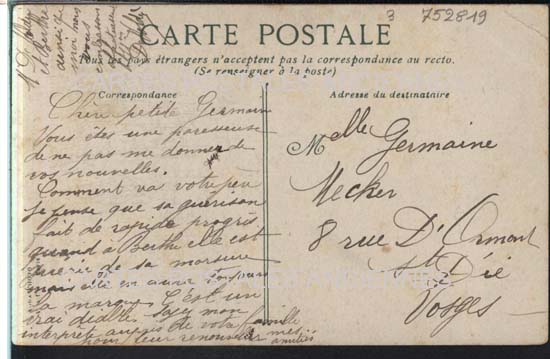 3 752819
CARTE POSTALE
Tous les pays étrangers n'acceptent pas la correspondance au recto.
(Se renseigner à la poste)
Correspondance
Adresse du destinataire
Chère petite Germain
Vous êtes une paresseuse
de ne pas me donner de
vos nouvelles.
Comment va votre père
Je pense que sa guérison
fait de rapide progrès
quand à Berthe elle est
guérie de sa morsure
mais elle en aura toujours
la marque. C'est un
vrai diable. Soyez mon
interprète auprès de votre famille
pour leur renouveller mes
amitiés
Melle Germaine
Mecker
8 rue D'Ormont
St Dié
Vosges
et Berthe
ainsi que
moi nous
vous